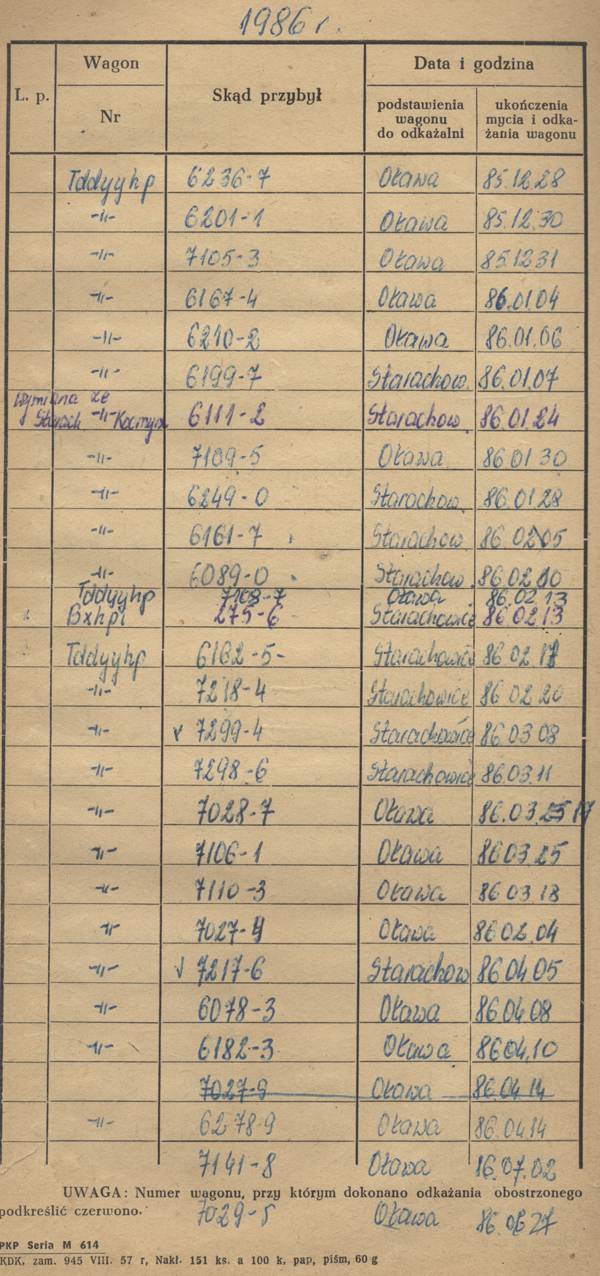 1986 r.
L. p.
Wagon
Nr
Skąd przybył
Data i godzina
podstawienia
wagonu
do odkażalni
ukończenia
mycia i odka-
żania wagonu
Tddyyhp 6236-7 Oława 85.12.28
-11- 6201-1 Oława 85.12.30
-11- 7105-3 Oława 85.12.31
-11- 6167-4 Oława 86.01.04
-11- 6210-2 Oława 86.01.06
-11- 6199-7 Starachow. 86.01.07
wymiana ze
Starach -11- 6111-2 Starachow. 86.01.24
-11- 7109-5 Oława 86.01.30
-11- 6249-0 Starachow. 86.01.28
-11- 6161-7 Starachow 86.02.05
-11- 6089-0 Starachow. 86.02.10
Tddyyhp 7108-7 Oława 86.02.13
Bxhpi 275-6 Starachowice 86.02.13
Tddyyhp 6162-5- Starachowice 86.02.17
-11- 7218-4 Starachowice 86.02.20
-11- v 7299-4 Starachowice 86.03.08
-11- 7298-6 Starachowice 86.03.11
-11- 7028-7 Oława 86.03.25 17
-11- 7106-1 Oława 86.03.25
-11- 7110-3 Oława 86.03.18
-11- 7027-4 Oława 86.02.04
-11- v 7217-6 Starachow 86.04.05
-11- 6078-3 Oława 86.04.08
-11- 6182-3 Oława 86.04.10
7027-9 Oława 86.04.14
-11- 6278-9 Oława 86.04.14
7141-8 Oława 16.07.02
UWAGA: Numer wagonu, przy którym dokonano odkażania obostrzonego
podkreślić czerwono.
7029-5 Oława 86.06.27
PKP Seria M 614
KDK, zam. 945 VIII. 57 r, Nakł. 151 ks. a 100 k, pap, piśm, 60 g